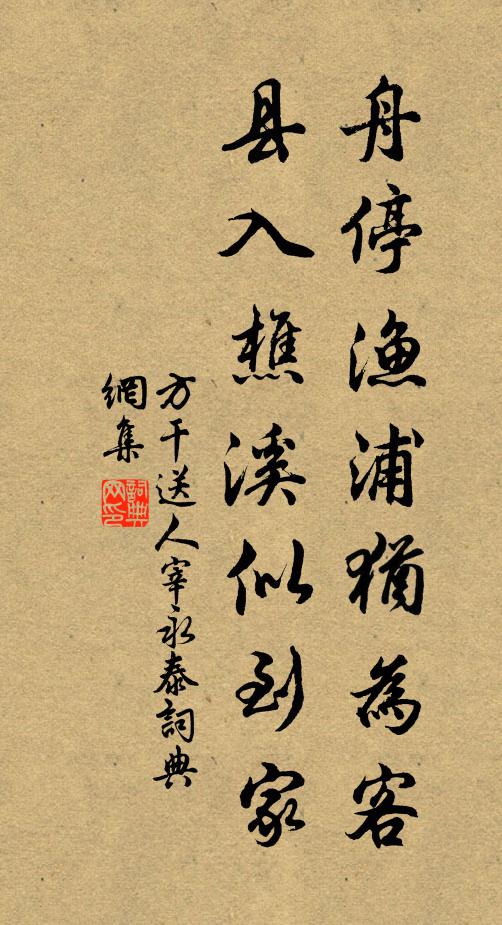 舟停渔浦犹為客
县入樵溪似到家
方干送人宰永泰詞典
網集
詞典
网印